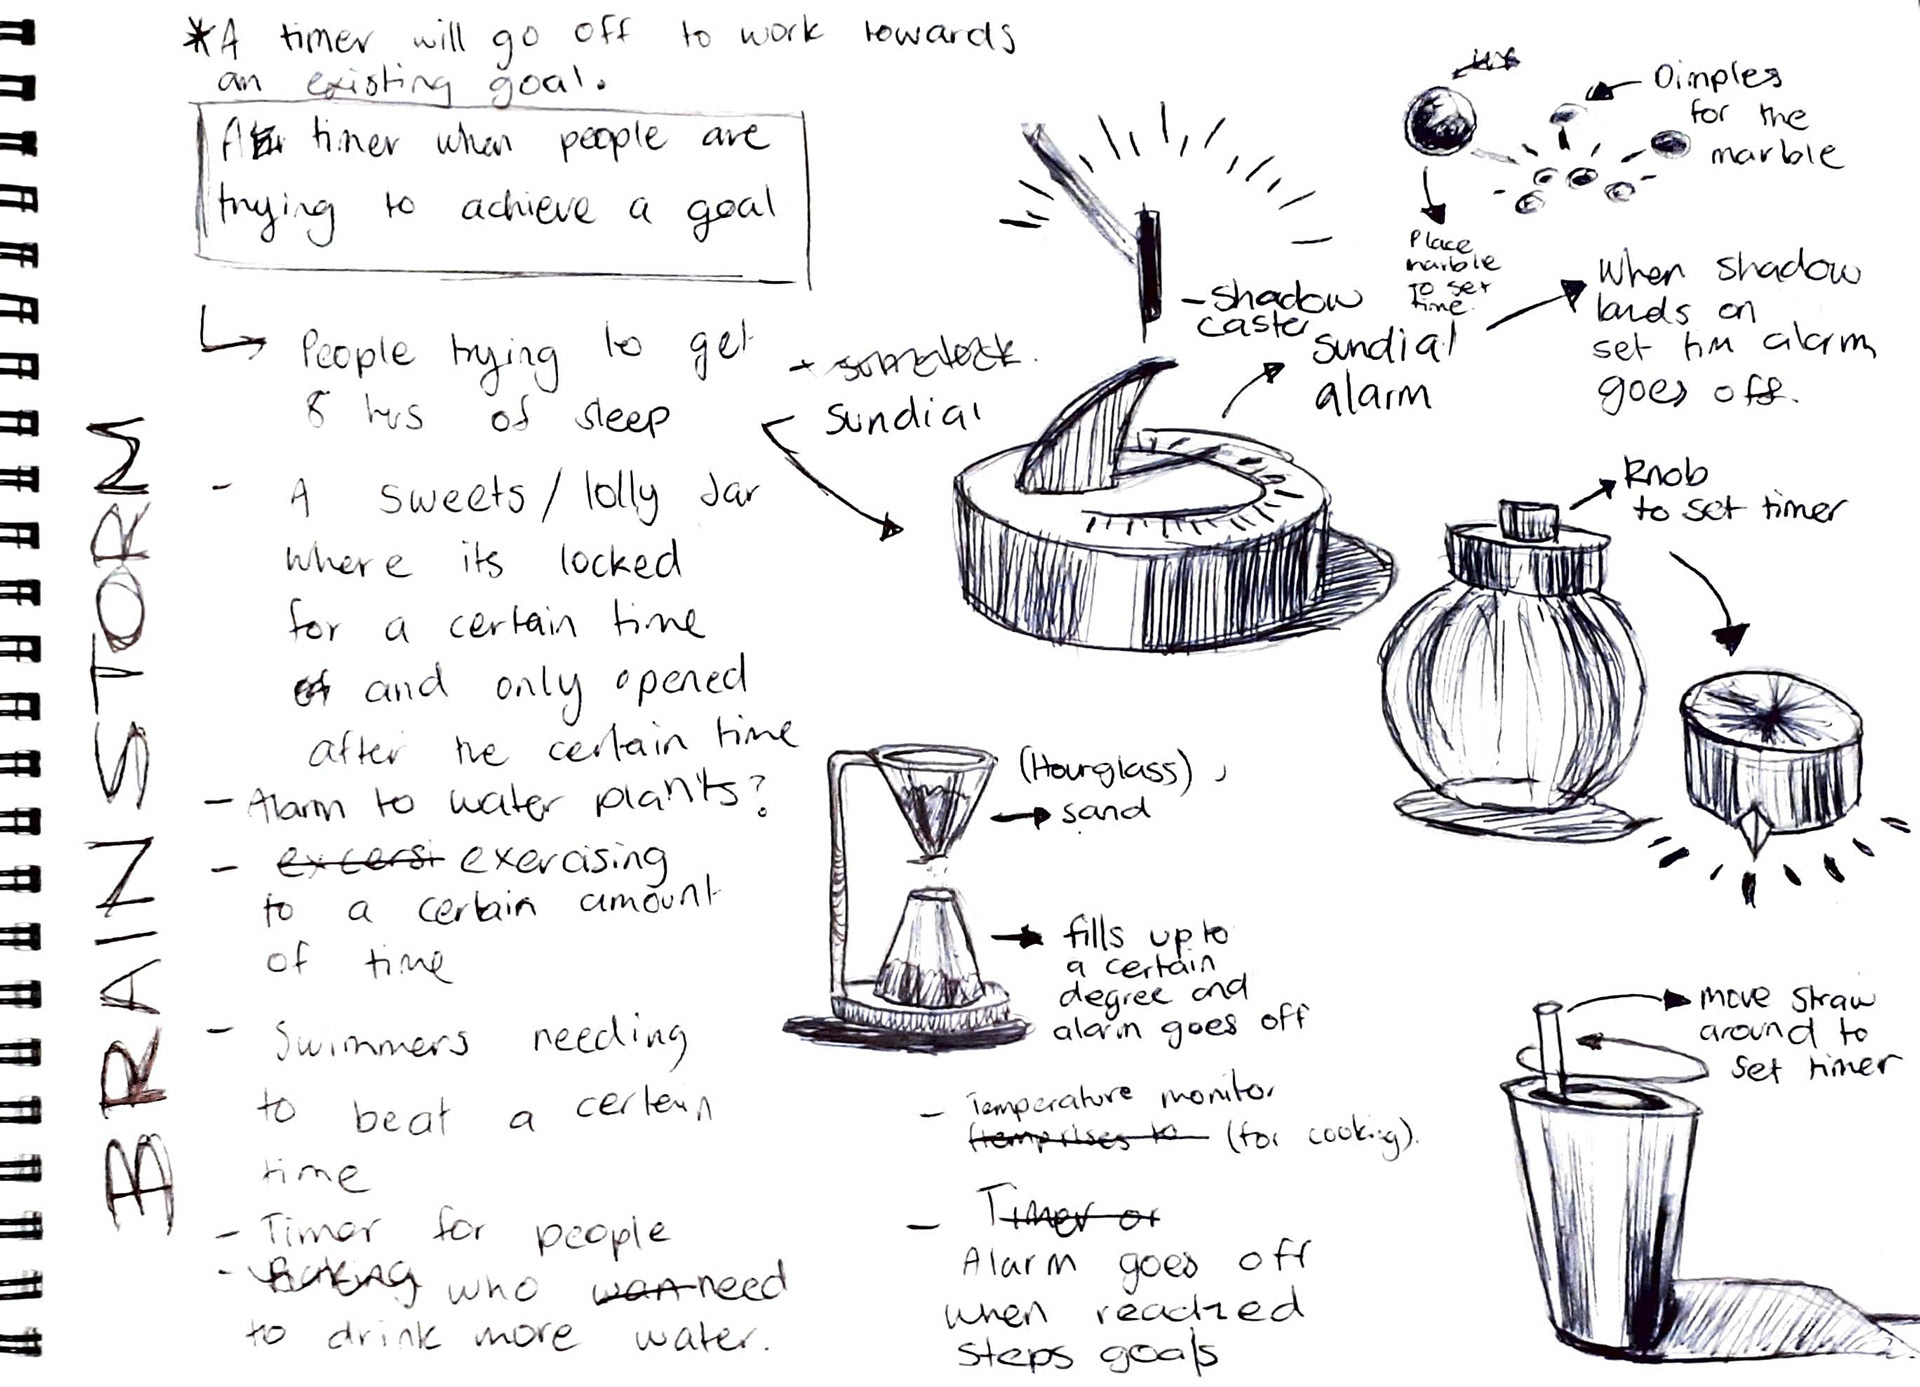 *A timer will go off to work towards
an existing goal.
A timer when people are
trying to achieve a goal
People trying to get
8 hrs of sleep
- A sweets / lolly Jar
where its locked
for a certain time
and only opened
after the certain time
- Alarm to water plants?
- excersi exercising
to a certain amount
of time
- Swimmers needing
to beat a certain
time
- Timer for people
- who wan need
to drink more water.
BRAIN STORM
sundial
- shadow
caster
sundial
alarm
When shadow
lands on
set tim alarm
goes off.
Dimples
for the
marble
Place
marble
to set
time.
Knob
to set timer
(Hourglass)
sand
fills up to
a certain
degree and
alarm goes off
- Temperature monitor
(temp rises to (for cooking).
- Timer or
Alarm goes off
when reached
steps goals
move straw
around to
set timer